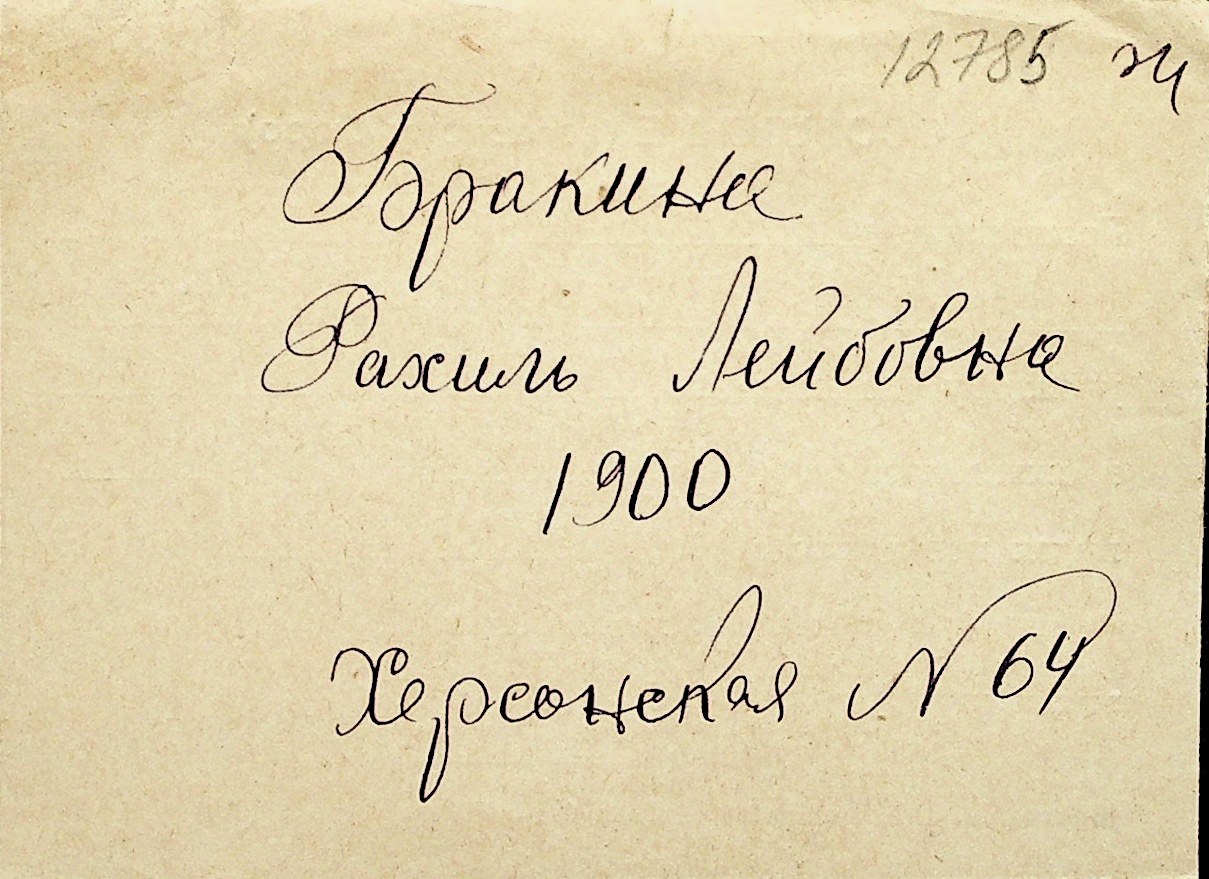 12785 ж
Бракина
Рахиль Лейбовна
1900
Херсонская N 64